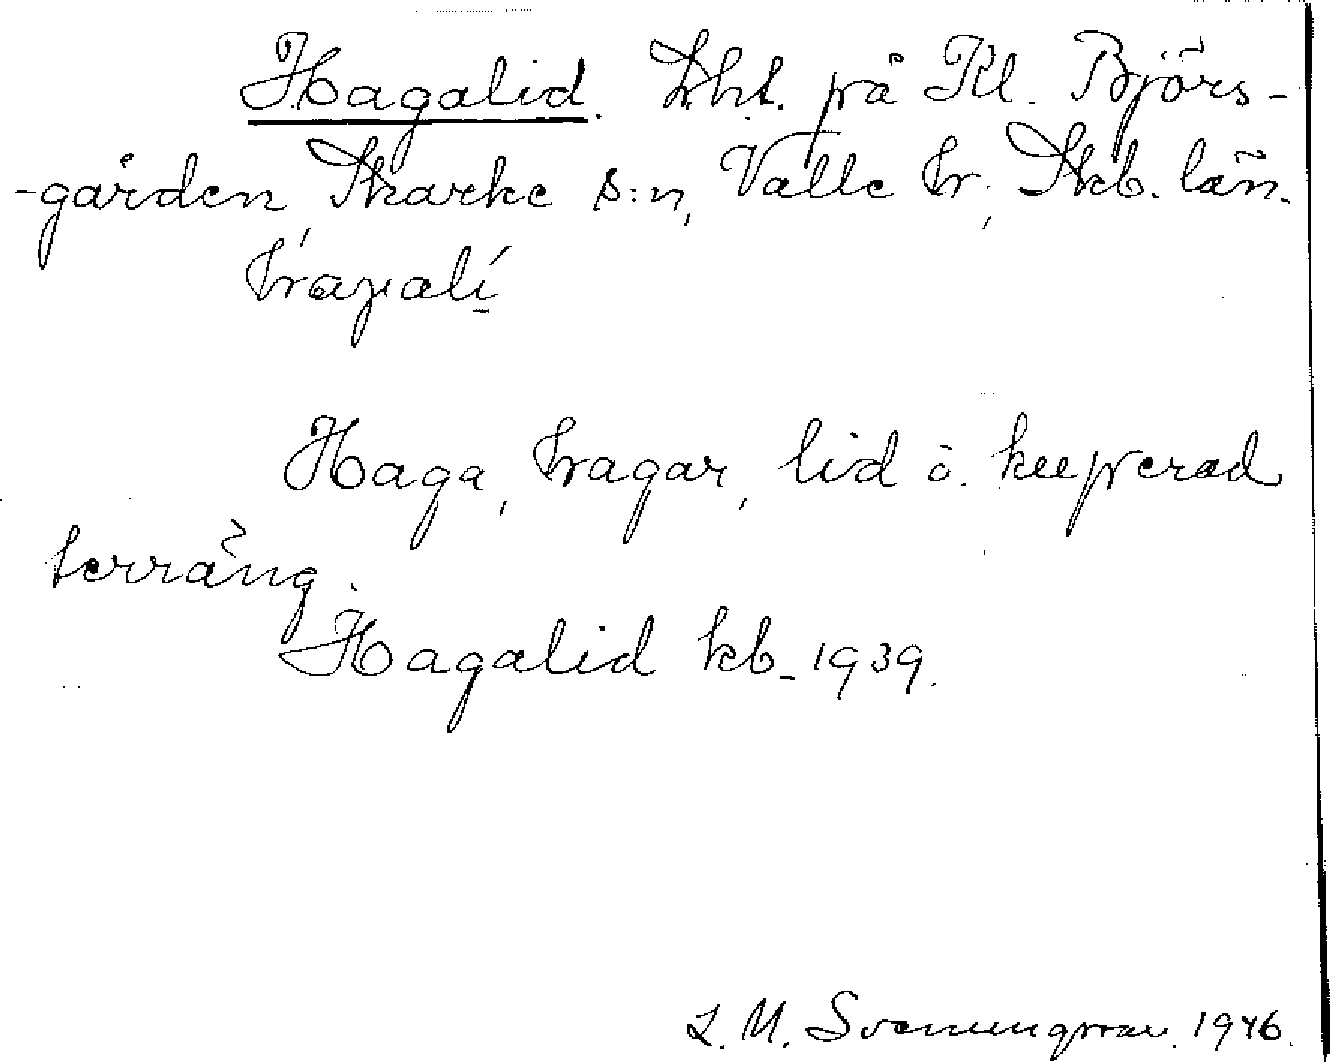 Hagalid. Lht. på Kl. Björs-
-gården, Skarke s:n, Valle hr, Skb. län.
Haga, hagar, lid o. kuperad
terräng.
Hagalid kb. 1939.
L. M. Svenungsson 1946.